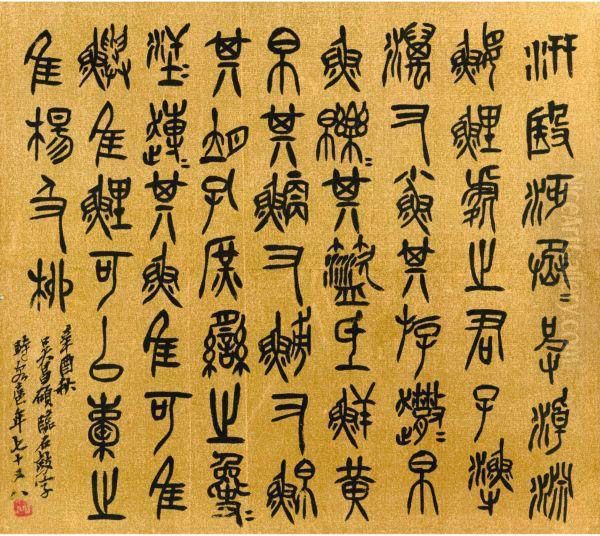 汧殹沔=烝皮淖淵
鰋鯉處之君子漁
澫又小魚其斿趣=帛
魚皪=其籃氐鮮黃
帛其鯿又鰟又鮊
其胡孔庶臠之夐=
汗=趍=其魚隹可隹
鱮隹鯉可以橐之
隹楊及柳
辛酉秋
吳昌碩臨石鼓字
時客滬年七十又八